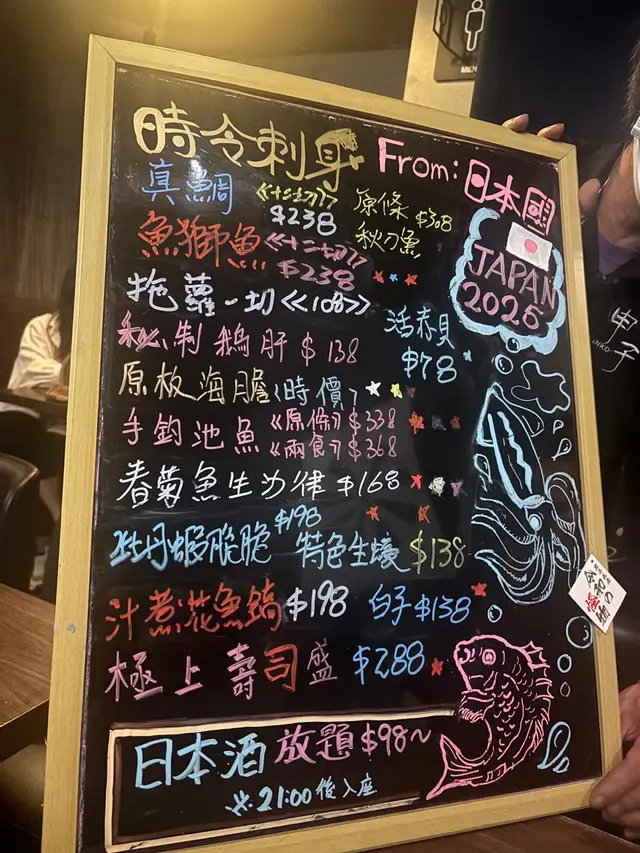 MEN
時令刺身 From: 日本國
真鯛 <<十二切>> $238
原條秋刀魚 $308
魚獅魚 <<十二切>> $238
JAPAN 2025
拖蘿一切 <<108>>
活赤貝 $78
秘制鵝肝 $138
原板海膽 (時價)
手釣池魚 <<原條>> $338
<<兩食>> $368
春菊魚生沙律 $168
牡丹蝦脆脆 $198
特色生蠔 $138
汁煮花魚鎬 $198
白子 $138
極上壽司盛 $288
日本酒 放題 $98~
※21:00後入座